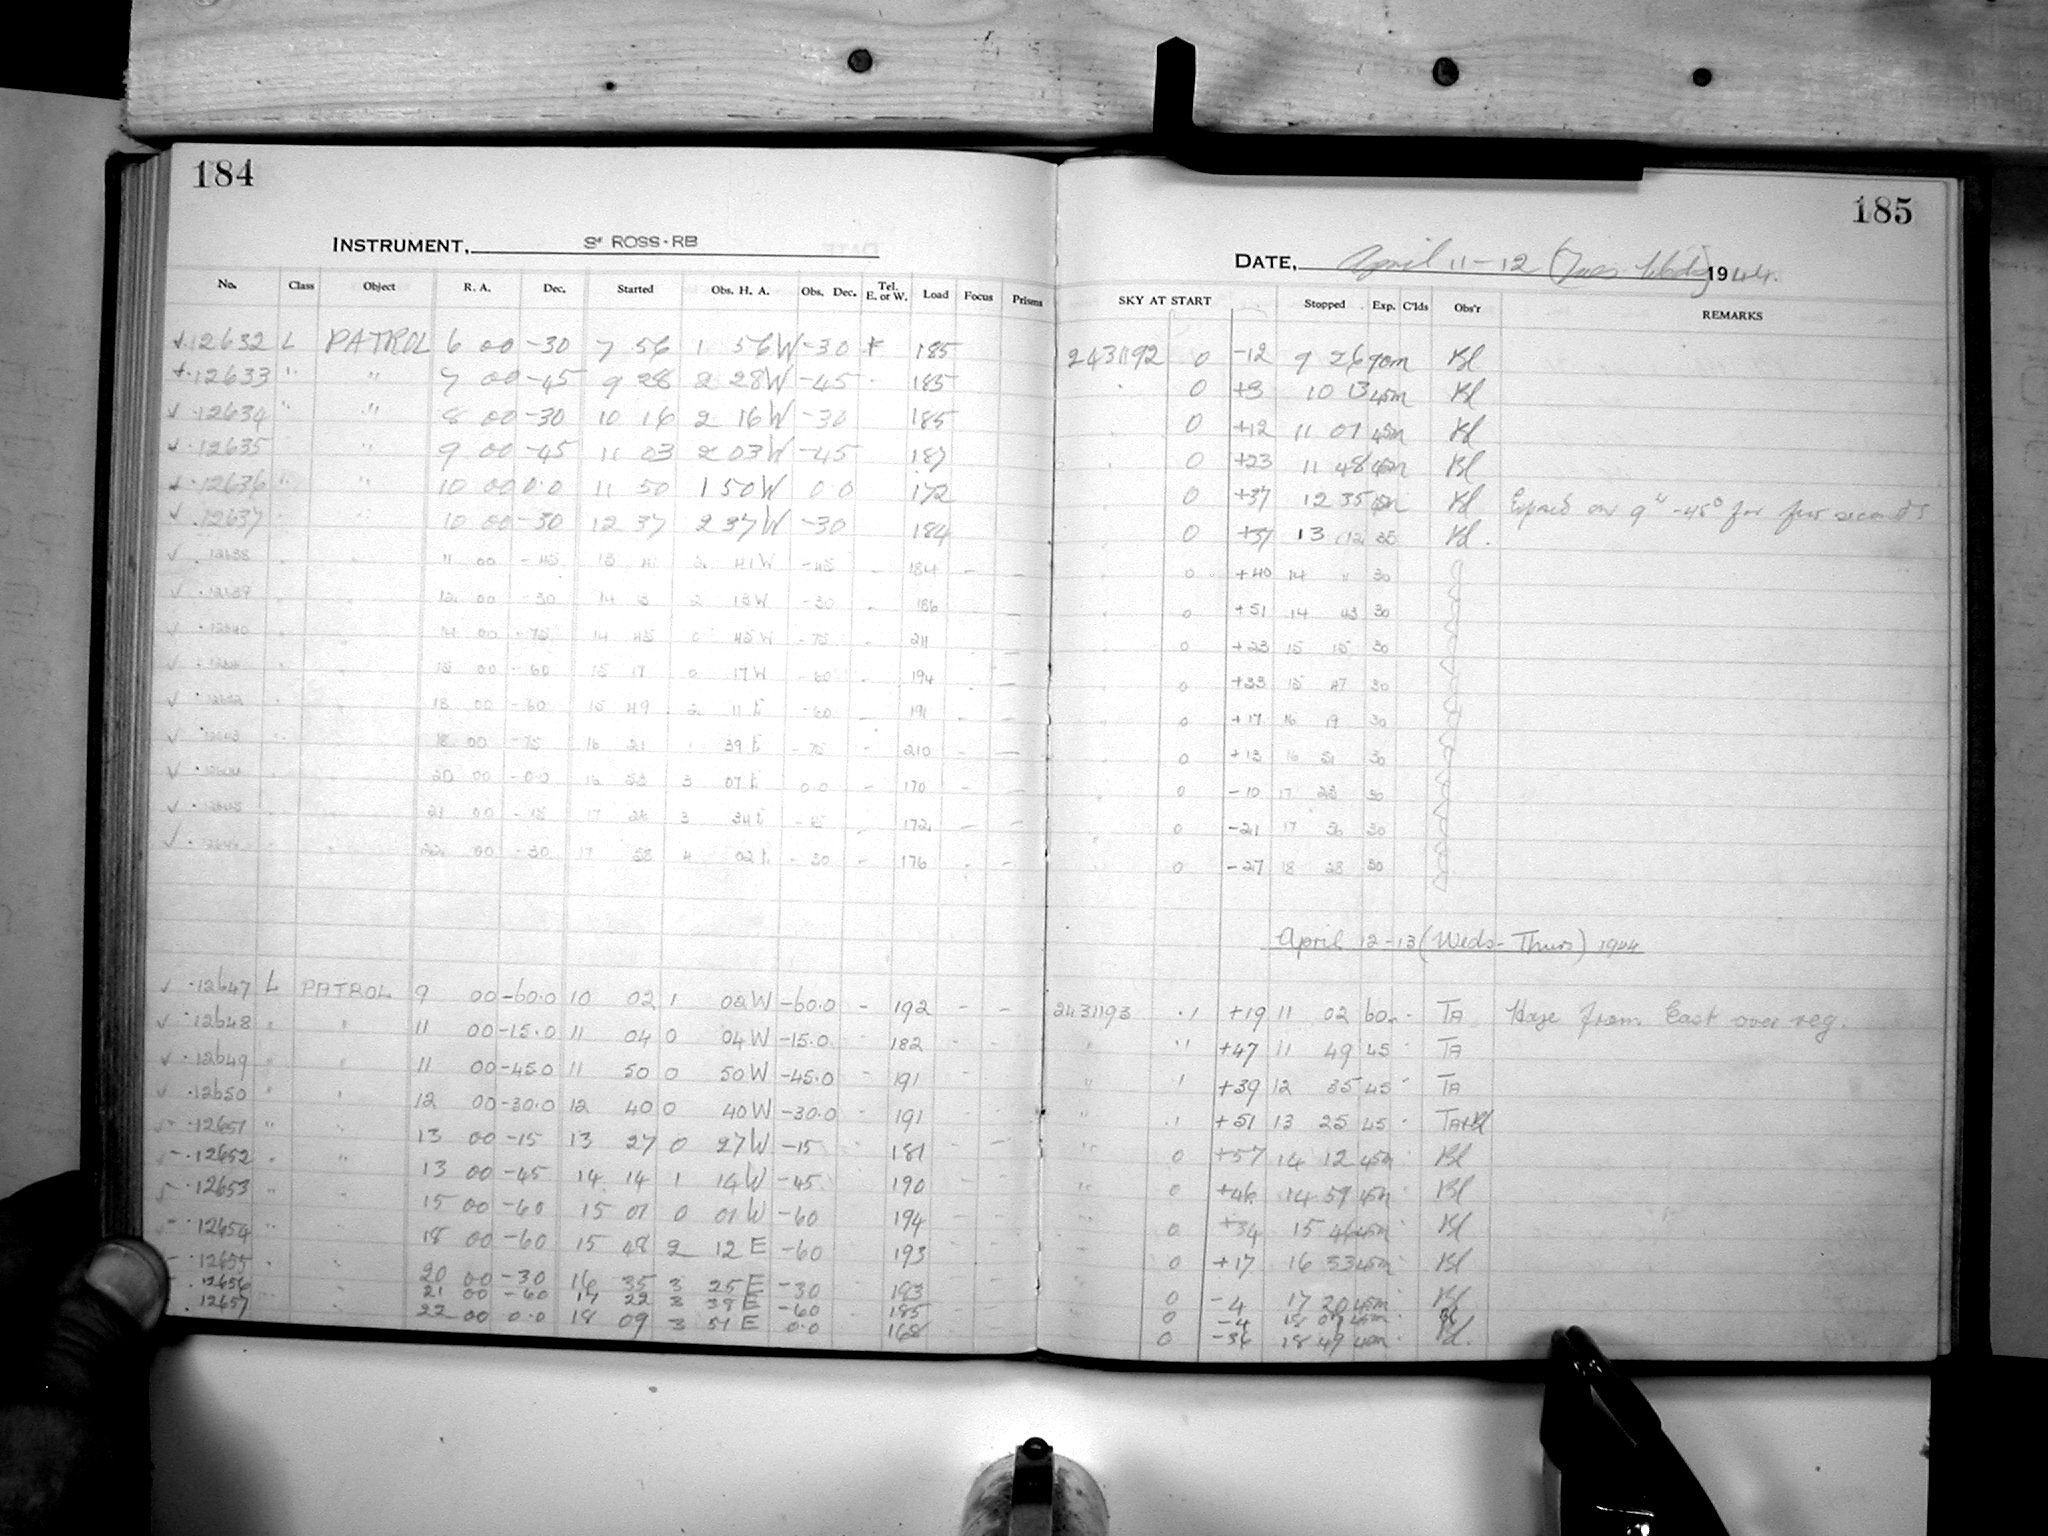 184
INSTRUMENT, ROSS-RB
No. Class Object R. A. Dec. Started Obs. H. A. Obs. Dec. Tel. E. or W. Load Focus Prisms
12632 L PATROL 6 00 -30 7 56 1 56W -30 185
12633 " " 7 00 -45 9 28 2 28W -45 185
12634 " " 8 00 -30 10 16 2 16W -30 185
12635 " 9 00 -45 11 03 2 03W -45 187
12636 " " 10 00 0.0 11 50 1 50W 0.0 172
12637 " 10 00 -30 12 37 2 37W -30 184
12638 11 00 -45 13 41 2 41W -45 184 - -
12639 12 00 -30 14 13 2 13W -30 186
12640 14 00 -75 14 45 0 45W -75 211
15 00 -60 15 17 0 17W -60 194
18 00 -60 15 49 2 11E -60 191 - -
18 00 -75 16 21 1 39E -75 210 - -
20 00 -0.0 16 53 3 07E 0.0 170 - -
21 00 -15 17 26 3 34E 172 - -
22 00 -30 17 58 4 02E -30 176 - -
12647 L PATROL 9 00 -60.0 10 02 1 02W -60.0 - 192 - -
12648 " " 11 00 -15.0 11 04 0 04W -15.0 182 - -
12649 " " 11 00 -45.0 11 50 0 50W -45.0 - 191 - -
12650 " " 12 00 -30.0 12 40 0 40W -30.0 191 - -
12651 " " 13 00 -15 13 27 0 27W -15 181 - -
12652 " 13 00 -45 14 14 1 14W -45 190 - -
12653 " " 15 00 -60 15 01 0 01W -60 194 - -
12654 " 18 00 -60 15 48 2 12E -60 193 - -
12655 20 00 -30 16 35 3 25E -30 183
12656 21 00 -60 17 22 3 38E -60 185
12657 22 00 0.0 18 09 3 51E 0.0 168
185
DATE, April 11-12 1944.
SKY AT START Stopped Exp. C'lds Obs'r REMARKS
2431192 0 -12 9 26 90m Bl
0 +3 10 13 45m Bl
0 +12 11 01 45m Bl
0 +23 11 48 45m Bl
0 +37 12 35 45m Bl on 9h -45° for few seconds
0 +37 13 12 35 Bl.
0 +40 14 11 30
0 +51 14 43 30
0 +23 15 15 30
0 +33 15 47 30
0 +17 16 19 30
0 +13 16 51 30
0 -10 17 23 30
0 -21 17 56 30
0 -27 18 28 30
April 12-13 (Weds-Thurs) 1944
2431193 .1 +19 11 02 60m TA Haze from East over reg.
" .1 +47 11 49 45 TA
" .1 +39 12 35 45 TA
" .1 +51 13 25 45 TA+Bl
" 0 +57 14 12 45m Bl
" 0 +46 14 59 45m Bl
" 0 +34 15 46 45m Bl
" 0 +17 16 33 45m Bl
" 0 -4 17 20 45m Bl
0 -4 18 07 45m Bl
0 -36 18 49 40m Bl.